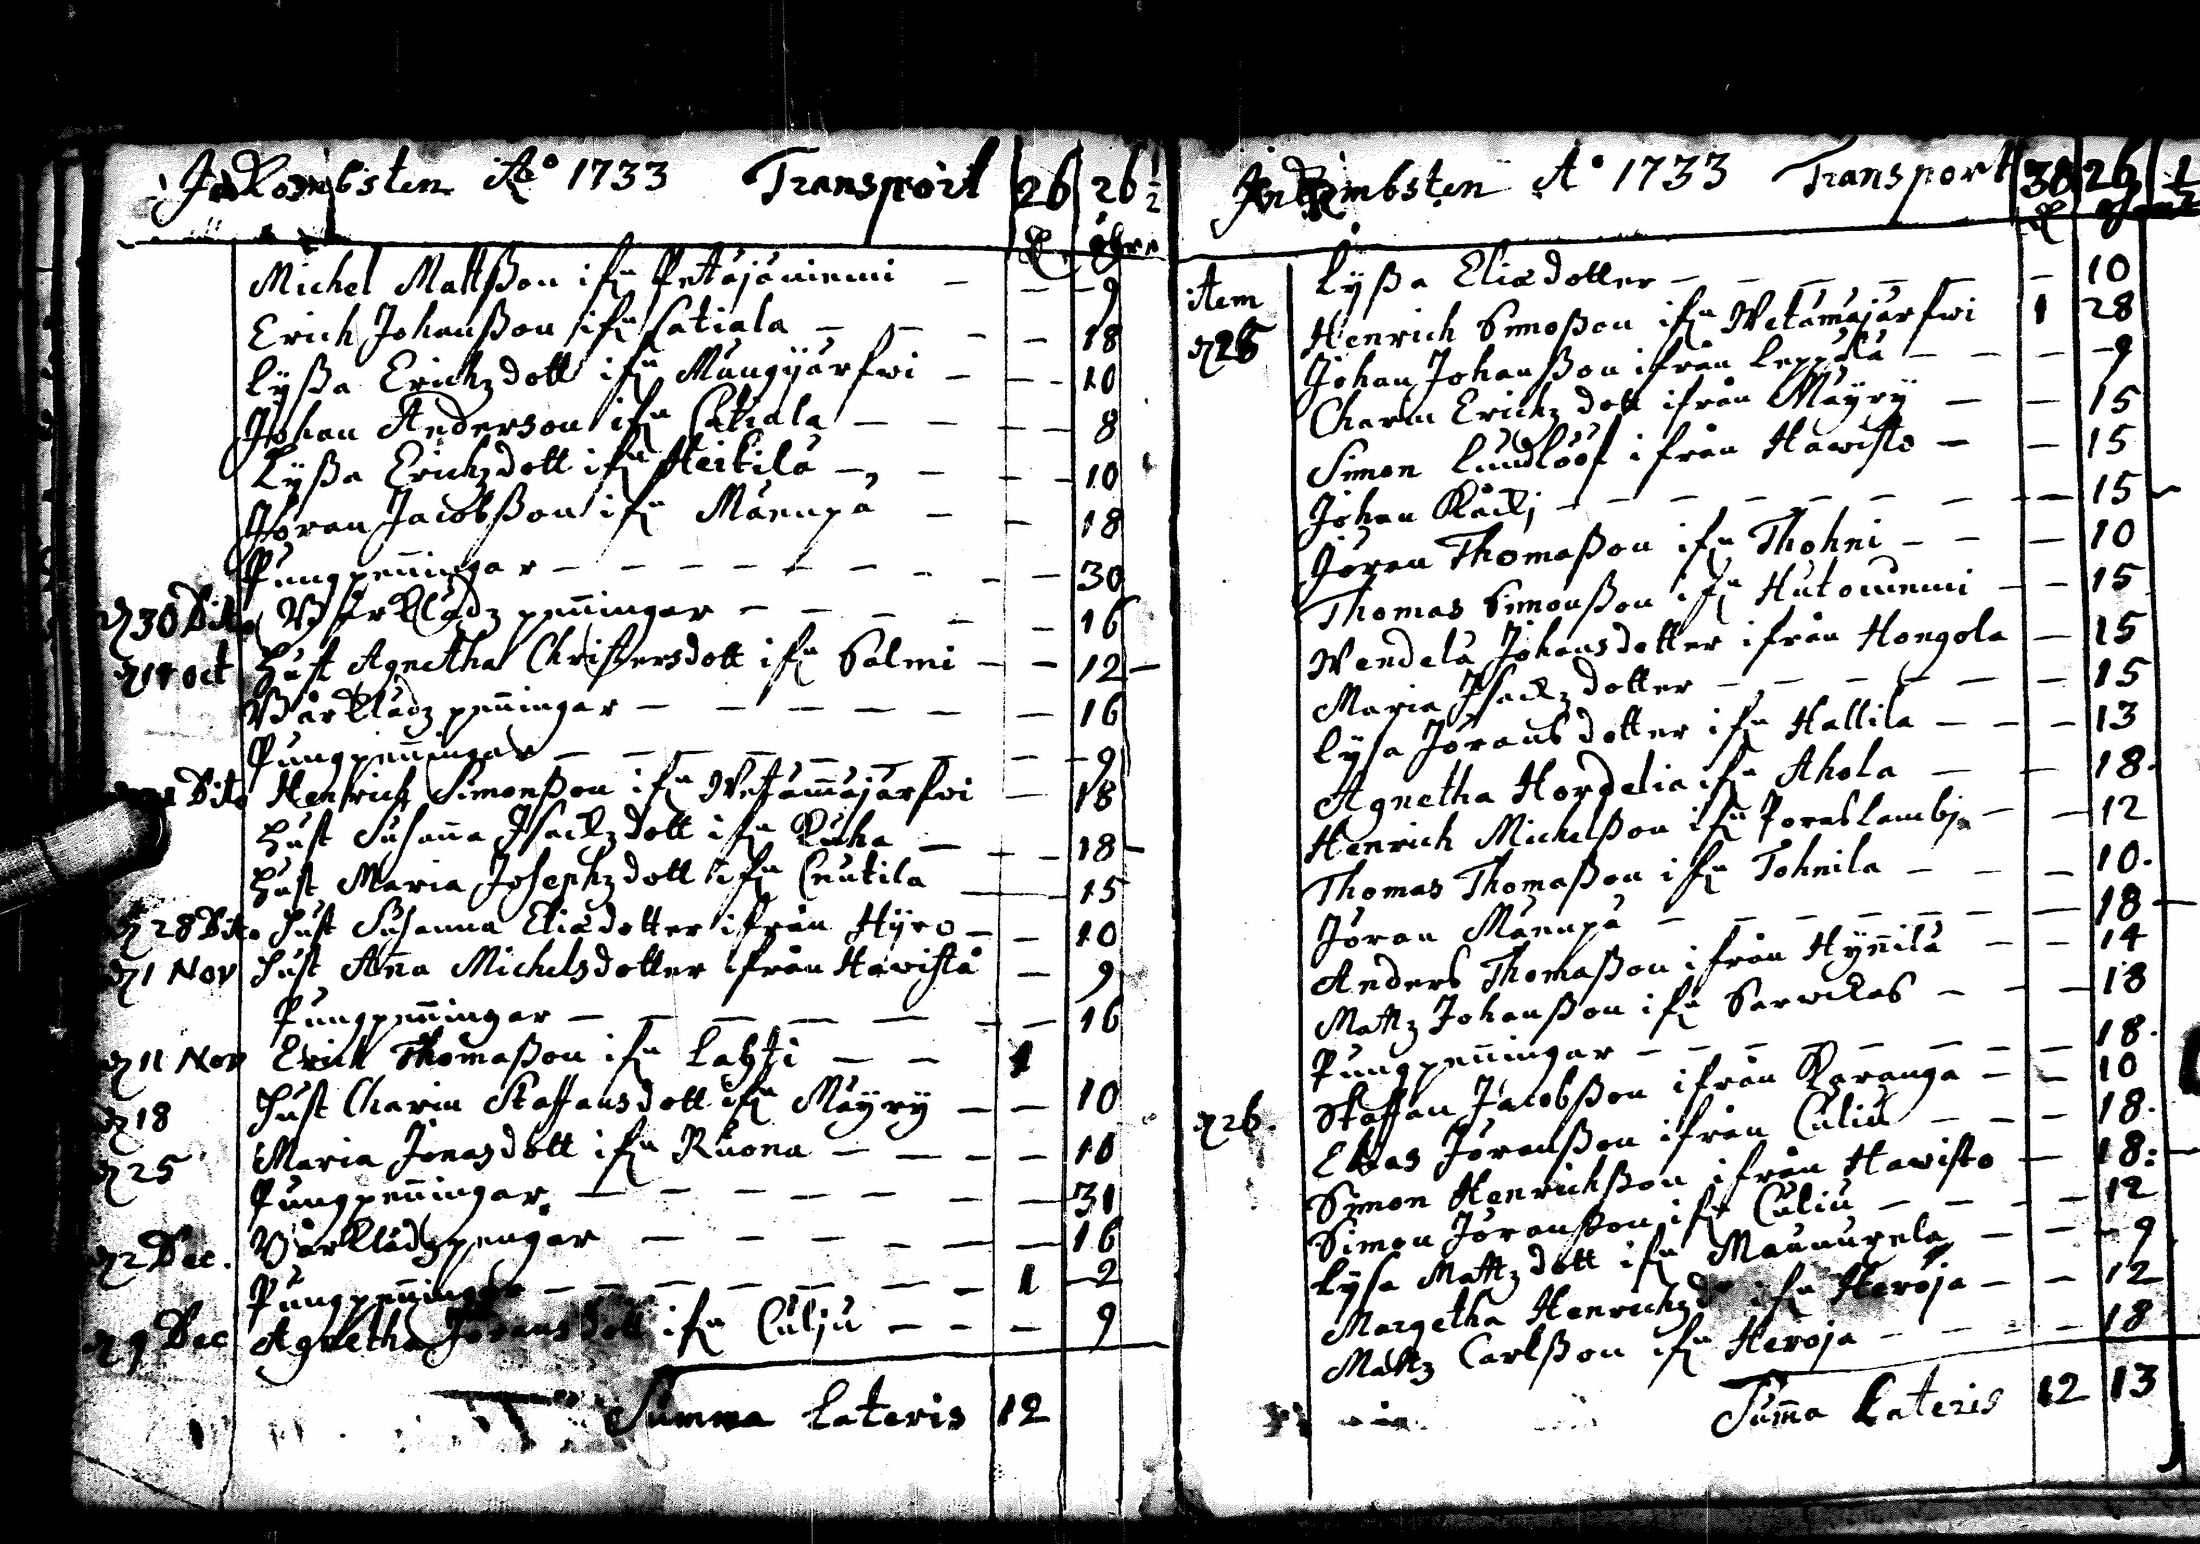 InKombsten A° 1733 Transport 26 26 1/2
öhre
Michel Mattßon ifn Petäjäniemi — — 9
Erich Johanßon ifn Catiala — — — 18
Lyßa Erichz dott ifn Mungijärfwi — — 10
Johan Anderson ifn Catiala — — — 8
Lyßa Erichzdott ifn Heikilä — — — 10
Jöran Jacobßon ifn Mäenpä — — 18
Pungpeñingar — — — — — 30
d 30 Dito Wårklädz peñingar — — — 16
d 14 oct Hust Agnetha Christersdott ifn Salmi — — 12 —
Wårklädz peñingar — — — — — 16
Pungpeñingar — — — — — 9
Dito Henrich Simonßon ifn Wetämäjärfwi — 18
Hust Susaña Isackz dott ifn Ruha — — — 18 —
Hust Maria Josephz dott ifn Ceutila — — 15
d 28 Dito Hust Susanna Eliædotter ifrån Hÿro — — 10
d 1 Nov Hust Aña Michelsdotter ifrån Hawistå — 9
Pungpeñingar — — — — — 16
d 11 Nov Erich Thomaßon ifn Lahti — — 1
d 18 Hust Charin Staffansdott ifn Mäyry — — 10
d 25 Maria Jonasdott ifn Ruona — — — 10
Pungpeñingar — — — — — 31
d 2 Dec. Wårklädzpengar — — — — 16
Pungpeñingar — — — — 1 — 2
d 9 Dec Agnetha Jöransdott ifn Culju — — — 9
Summa Lateris 12
InKombsten A° 1733 Transport 38 26 1/2
Lyßa Eliædotter — — — — — 10
Item
d 26 Henrich Simoßon ifn Wetämäjärfwi 1 28
Johan Johanßon ifrån Leppälä — — — 9
Charin Erichz dott ifrån Mäyrÿ — — 15
Simon Lundlööf ifrån Hawisto — — 15
Johan — — — — — — 15 —
Jöran Thomaßon ifn Thohni — — — 10
Thomas Simonßon ifn Hutoniemi — — 15
Wendela Johansdotter ifrån Hongola — 15
Maria Isackz dotter — — — — — 15
Lysa Jöransdotter ifn Hallila — — — 13
Agnetha Hordelia ifn Ahola — — 18.
Henrich Michelßon ifn Poraslambj — — 12
Thomas Thomaßon ifn Tohnila — — — 10.
Jöran Mäenpä — — — — — 18 —
Anders Thomaßon ifrån Hÿñilä — — 14
Mattz Johanßon ifn Sarwickas — — — 18
Pungpeñingar — — — — — 18.
Staffan Jacobßon ifrån Karanga — — 10
d 26. Elias Jöranßon ifrån Culiu — — — 18.
Simon Henrichßon ifrån Hawisto — 18: —
Simon Jöranßon ifn Culiu — — — 12
Lysa Mattz dott ifn Maunupela — — 9
Margetha Henrichz d ifn Heroja — — 12
Mattz Carlßon ifn Heroja — — — 18
Suma Lateris 12 13